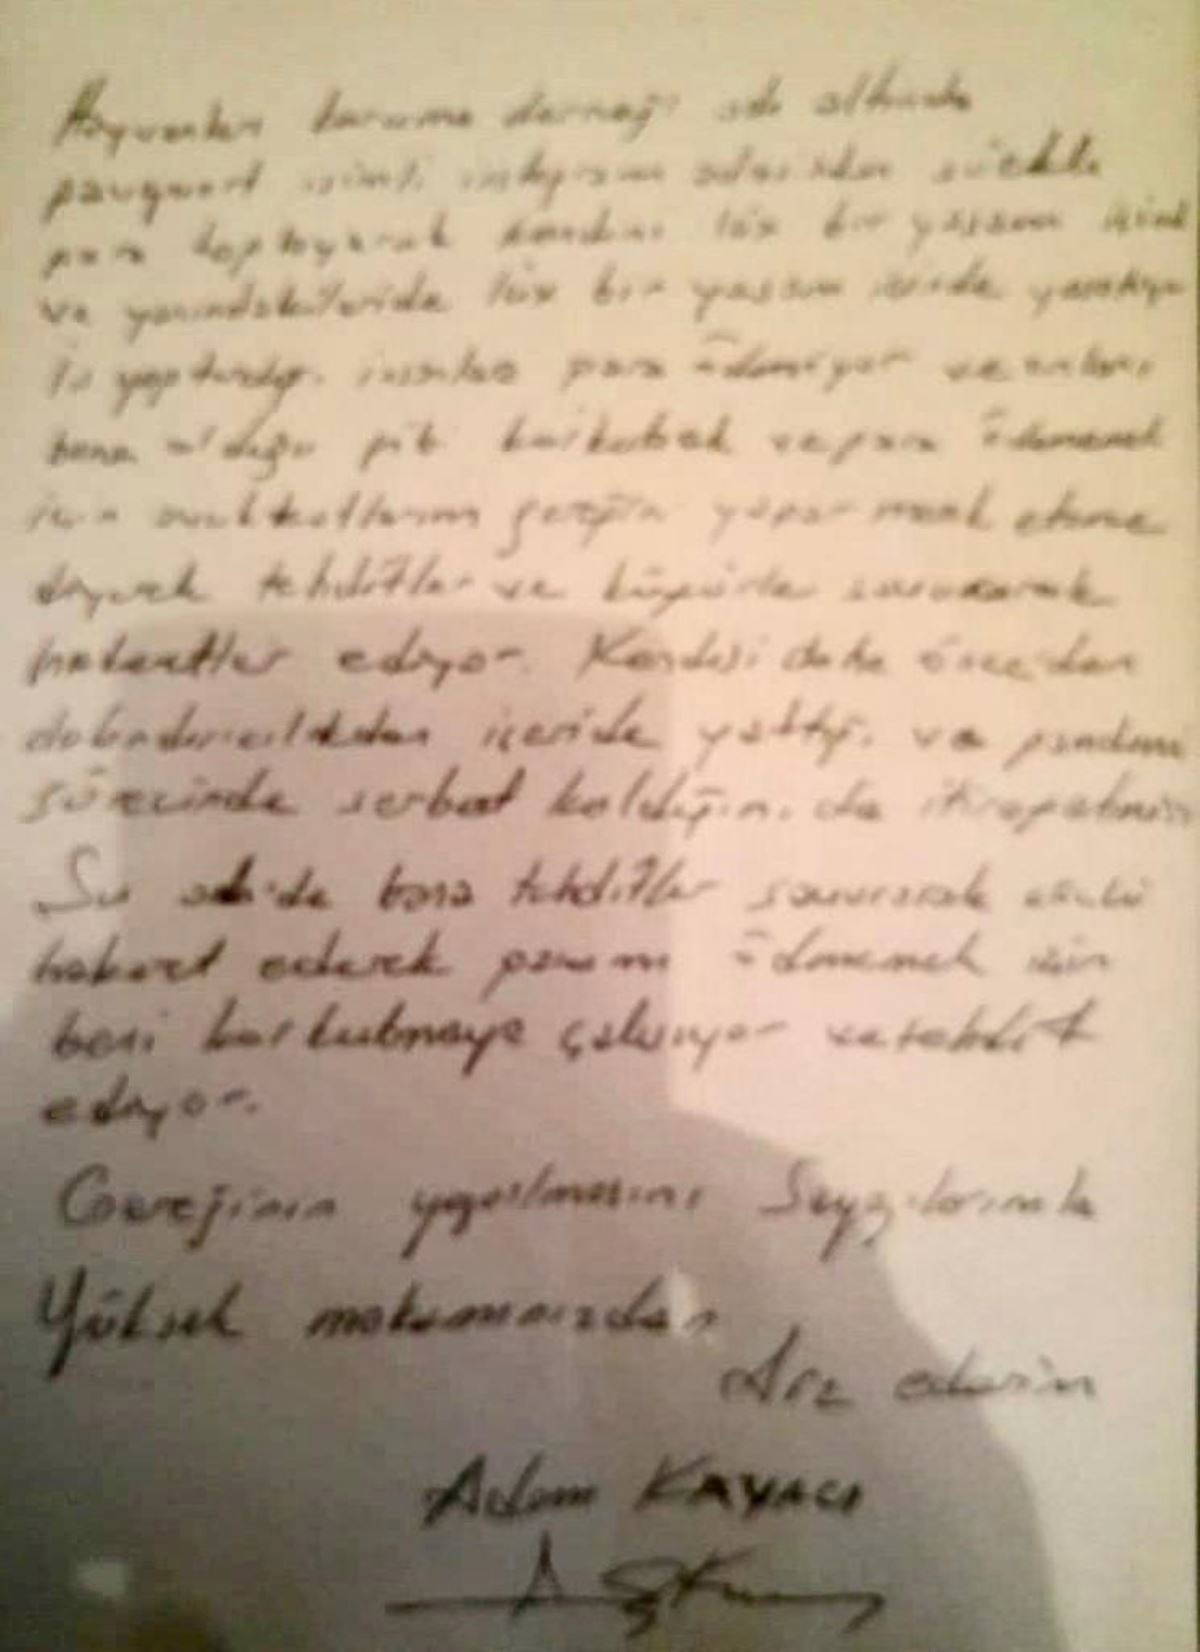 Hayvanları koruma derneği adı altında
pawguard isimli instagram adresinden sürekli
para toplayarak kendini lüx bir yaşam içinde
ve yanındakileride lüx bir yaşam içinde yaşatıyor
İş yaptırdığı insanlara para ödemiyor ve onları
bana olduğu gibi korkutarak ve para ödemenek
için avukatlarım gereğini yapar merak etme
diyerek tehditler ve küfürler savurarak
hakaretler ediyor. Kendisi daha önceden
dolandırıcılıktan içeride yattığı ve pandemi
sürecinde serbest kaldığını da itiraf etmiş
Şu anda bana tehditler savurarak
hakaret ederek paramı ödememek için
beni korkutmaya çalışıyor ve tehdit
ediyor.
Gereğinin yapılmasını Saygılarımla
Yüksek makamınızdan
Arz ederim
Adem KAYACI